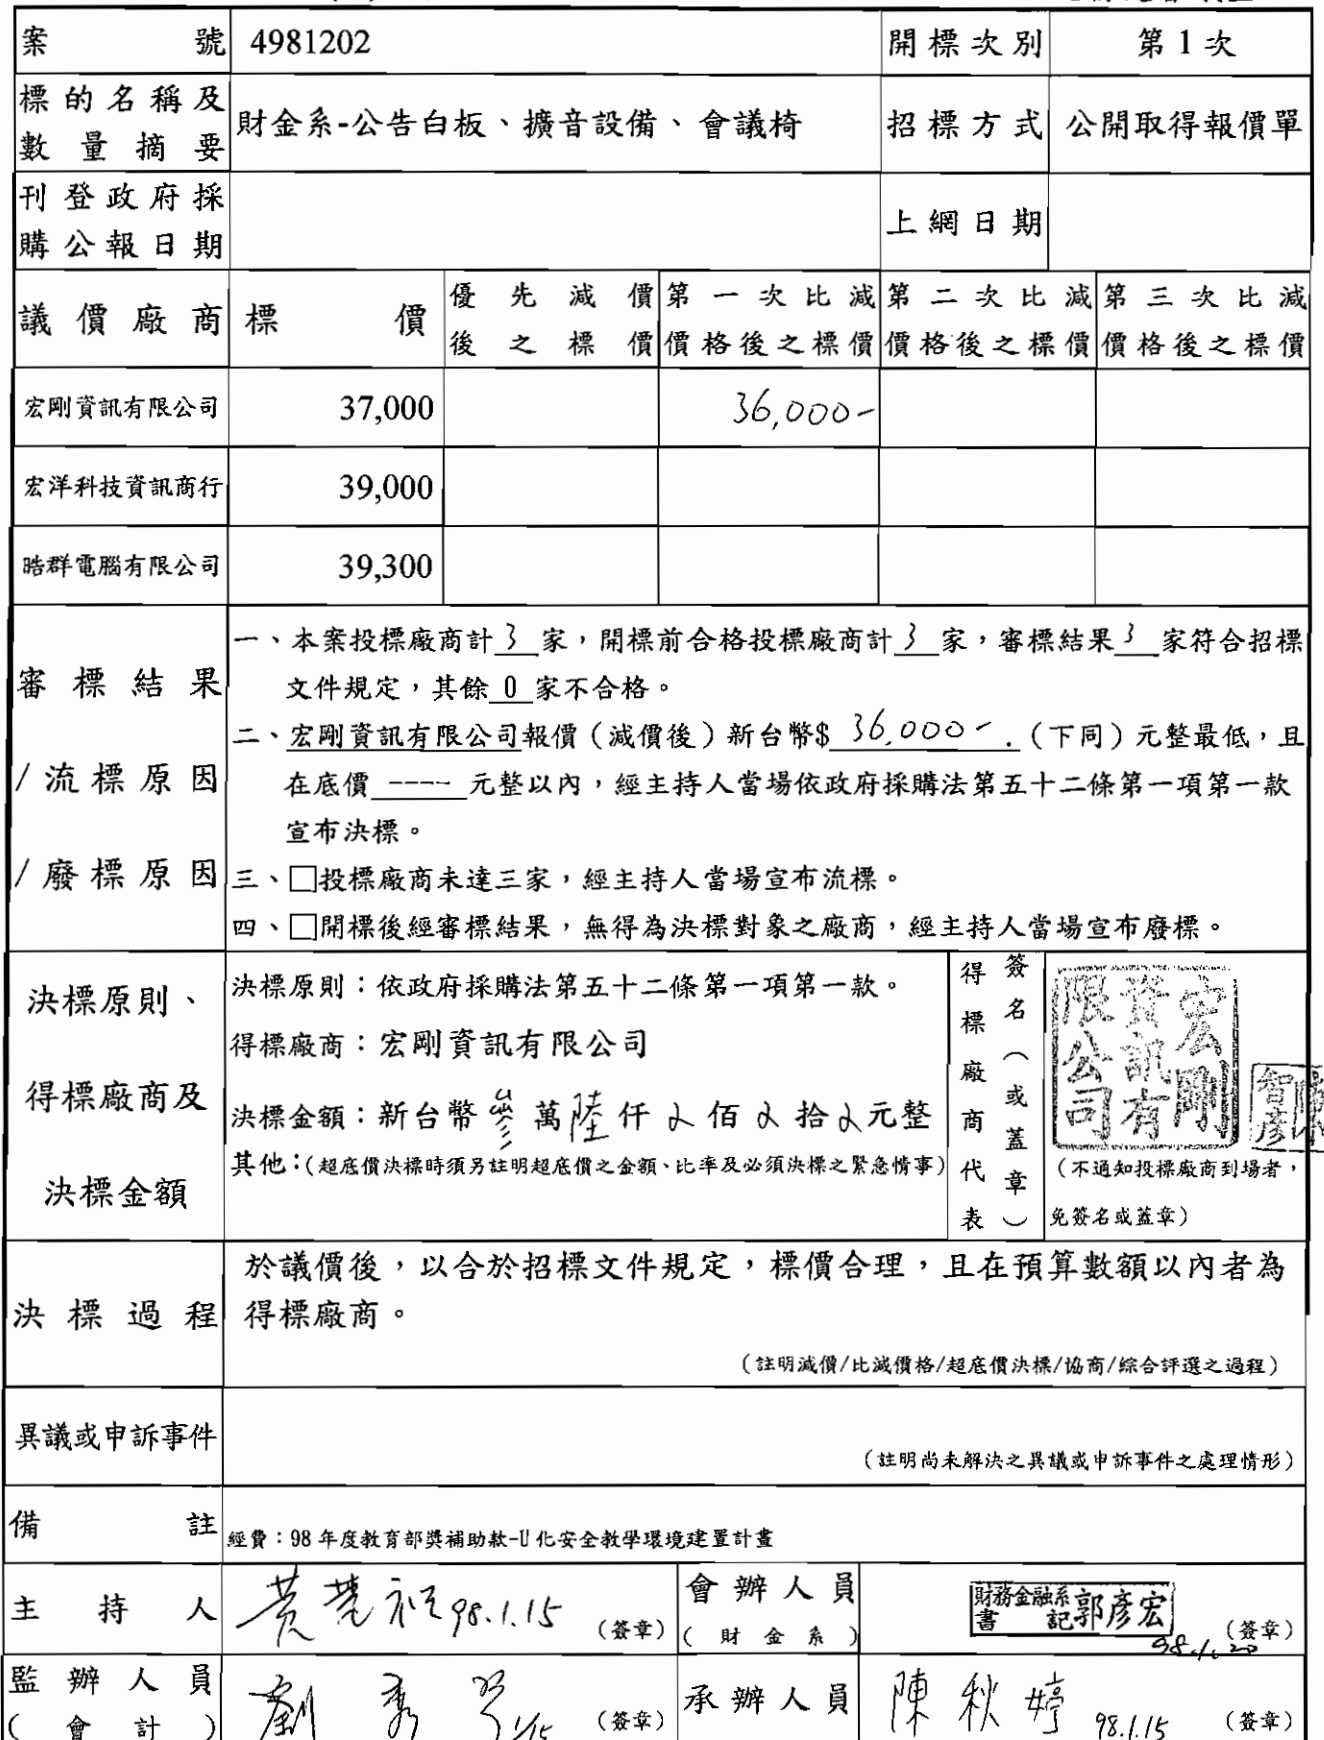 案號 4981202 開標次別 第1次
標的名稱及數量摘要 財金系-公告白板、擴音設備、會議椅 招標方式 公開取得報價單
刊登政府採購公報日期 上網日期
議價廠商 標價 優先減價後之標價 第一次比減價格後之標價 第二次比減價格後之標價 第三次比減價格後之標價
宏剛資訊有限公司 37,000 36,000-
宏洋科技資訊商行 39,000
晧群電腦有限公司 39,300
審標結果
/流標原因
/廢標原因
一、本案投標廠商計 3 家,開標前合格投標廠商計 3 家,審標結果 3 家符合招標
文件規定,其餘 0 家不合格。
二、宏剛資訊有限公司報價(減價後)新台幣$ 36,000-.(下同)元整最低,且
在底價 ---- 元整以內,經主持人當場依政府採購法第五十二條第一項第一款
宣布決標。
三、□投標廠商未達三家,經主持人當場宣布流標。
四、□開標後經審標結果,無得為決標對象之廠商,經主持人當場宣布廢標。
決標原則、
得標廠商及
決標金額
決標原則:依政府採購法第五十二條第一項第一款。
得標廠商:宏剛資訊有限公司
決標金額:新台幣 參 萬 陸 仟 0 佰 0 拾 0 元整
其他:(超底價決標時須另註明超底價之金額、比率及必須決標之緊急情事)
得標廠商代表
簽名(或蓋章)
宏剛資訊有限公司
智彥
(不通知投標廠商到場者,
免簽名或蓋章)
決標過程
於議價後,以合於招標文件規定,標價合理,且在預算數額以內者為
得標廠商。
(註明減價/比減價格/超底價決標/協商/綜合評選之過程)
異議或申訴事件
(註明尚未解決之異議或申訴事件之處理情形)
備註 經費:98 年度教育部獎補助款-U化安全教學環境建置計畫
主持人 98.1.15 (簽章) 會辦人員(財金系) 財務金融系書記 郭彥宏 98.1.20 (簽章)
監辦人員(會計) 劉秀 1/15 (簽章) 承辦人員 陳秋婷 98.1.15 (簽章)